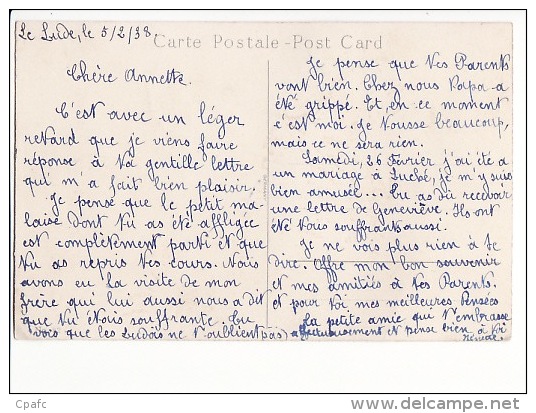 Le Lude, le 5/2/38.
Carte Postale - Post Card
Chère Annette.
C'est avec un léger
retard que je viens faire
réponse à ta gentille lettre
qui m'a fait bien plaisir.
Je pense que le petit ma-
laise dont tu as été affligée
est complètement parti et que
tu as repris tes cours. Nous
avons eu la visite de mon
frère qui lui aussi nous a dit
que tu étais souffrante. Tu
vois que les Ludois ne t'oublient (pas)
Je pense que tes Parents
vont bien. Chez nous Papa a
été grippé. Et, en ce moment
c'est moi. Je tousse beaucoup,
mais ce ne sera rien.
Samedi, 26 Février j'ai été a
un mariage à Luché, je m'y suis
bien amusée... Tu as dû recevoir
une lettre de Geneviève. Ils ont
été tous souffrants aussi.
Je ne vois plus rien à te
dire. Offre mon bon souvenir
et mes amitiés à tes Parents
et pour toi mes meilleures Pensées
La petite amie qui t'embrasse
affectueusement et pense bien à toi
delcampe.net
Cpafc